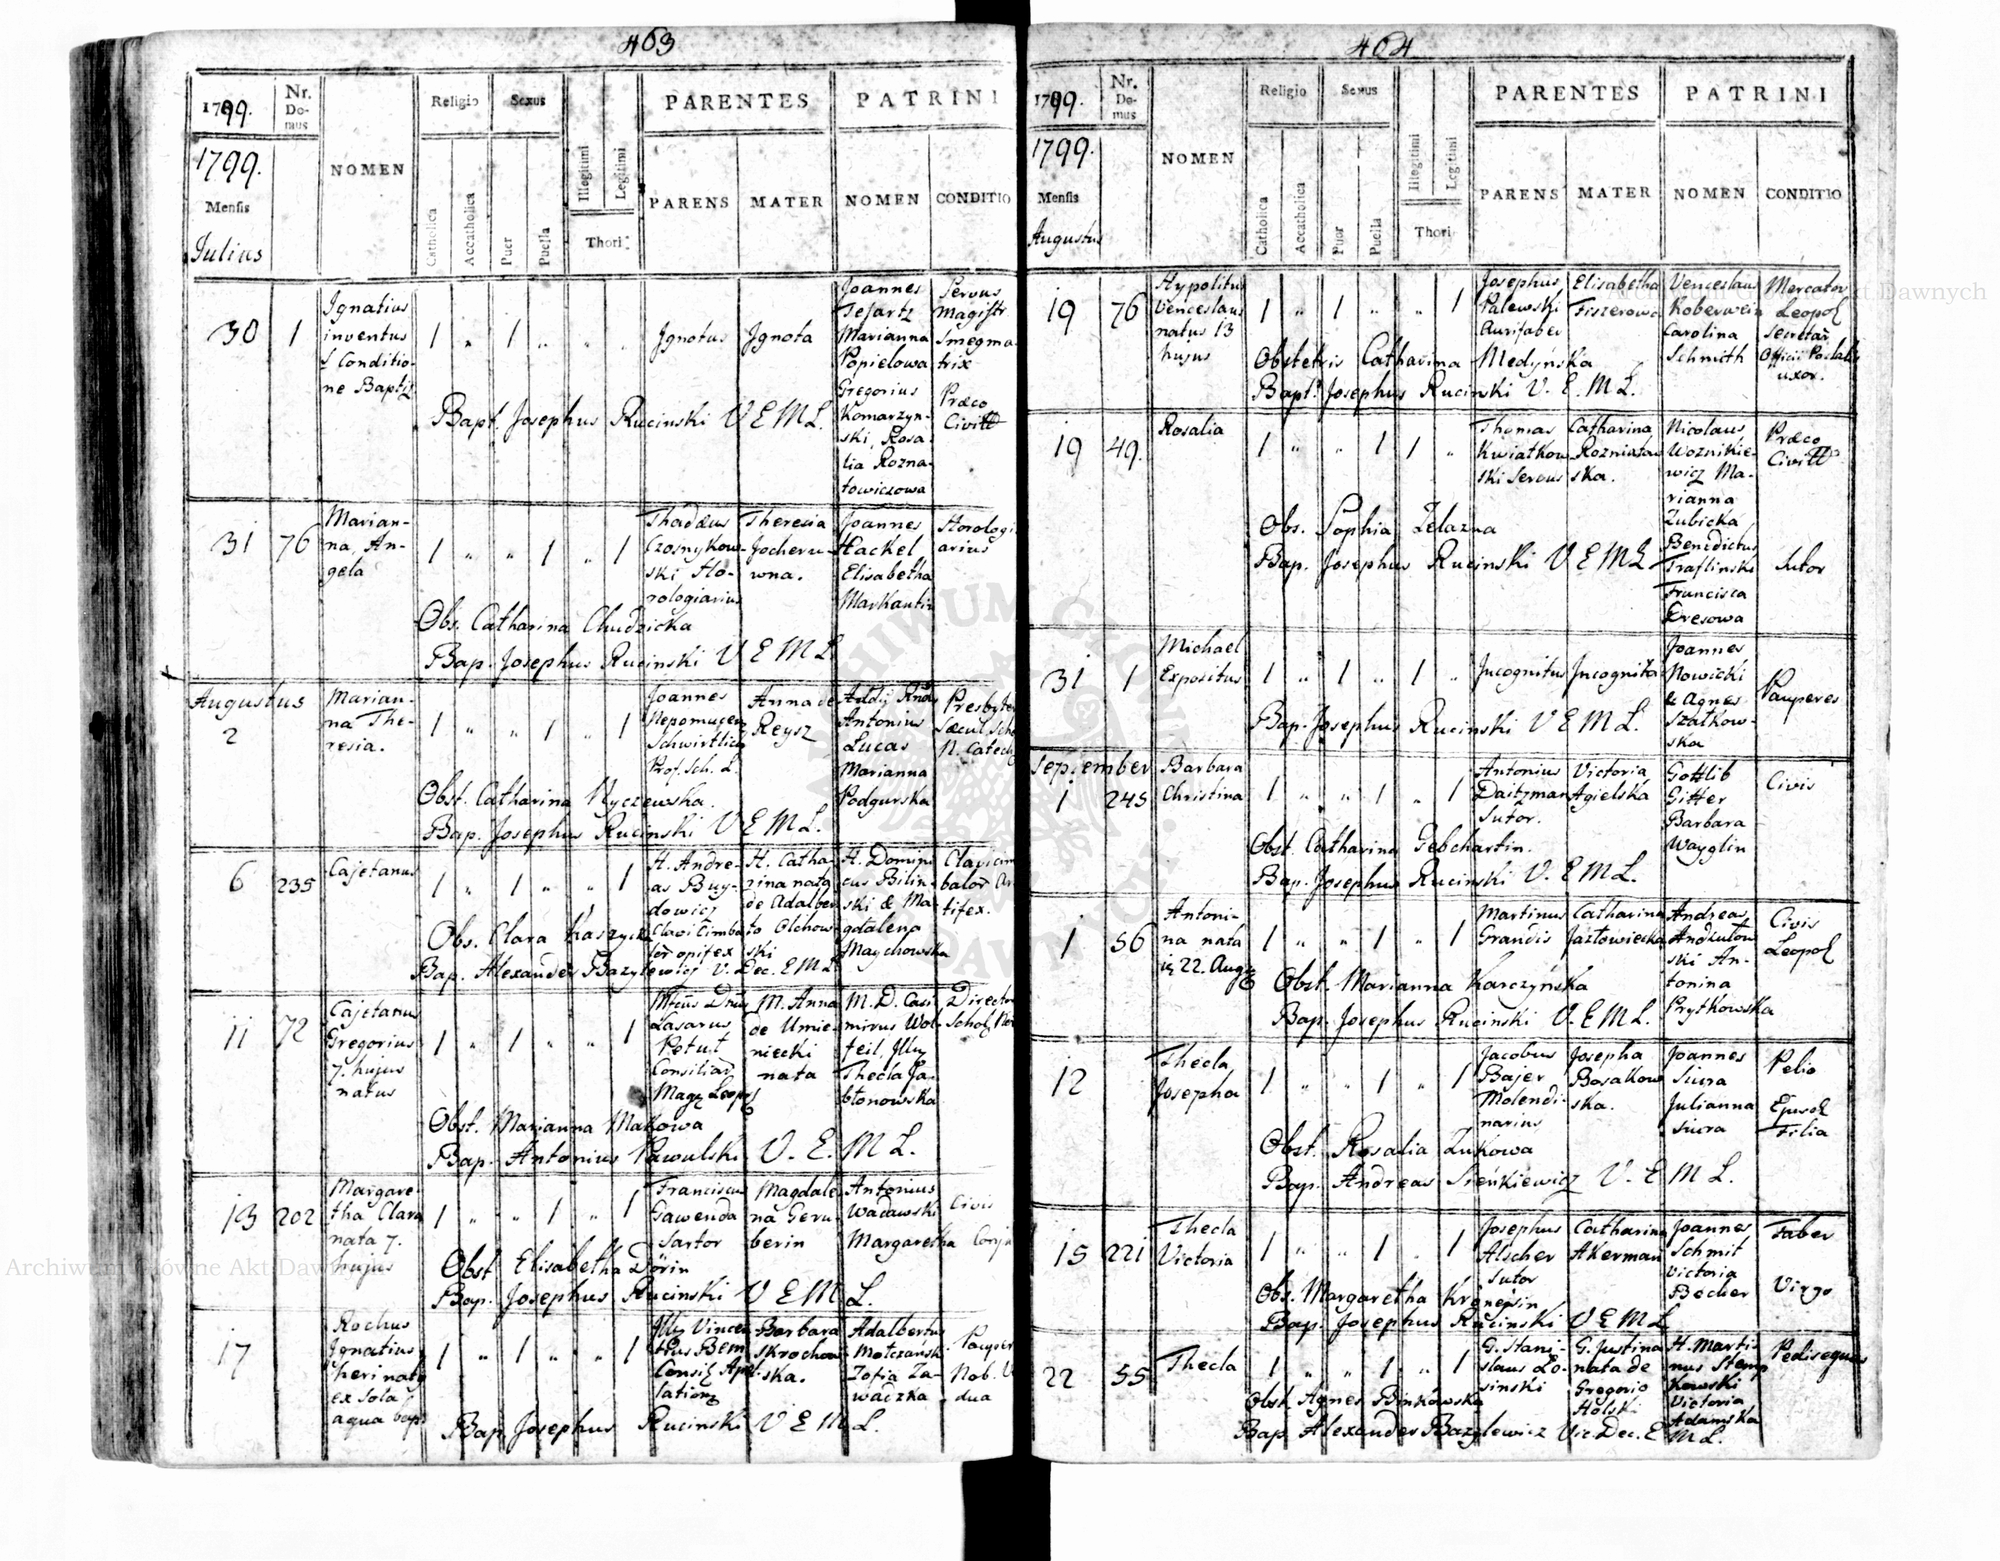 403
1799.
Nr. Domus
NOMEN
Religio
Sexus
PARENTES
PATRINI
1799.
Mensis
Julius
Catholica
Accatholica
Puer
Puella
Illegitimi
Legitimi
Thori
PARENS
MATER
NOMEN
CONDITIO
30 1
Ignatius
inventus
Conditio-
ne Baptiz
1 „ 1 „ „ „
Ignotus Ignota
Joannes
Marianna
Popielowa
Gregorius
Komarzyn-
ski, Rosa-
lia Rozna-
towiczowa
Servus
Magistr
Smegma-
trix
Præco
Civitt
Bapt. Josephus Rucinski V E M L.
31 76
Marian-
na, An-
gela
1 „ „ 1 „ 1
Thadæus
Czosnykow-
ski Ho-
rologiarius
Theresia
wna.
Joannes
Hackel
Elisabetha
Horologi-
arius
Obs. Catharina Chudzicka
Bap. Josephus Rucinski V E M L
Augustus
2
Marian-
na The-
resia.
1 „ „ 1 „ 1
Joannes
Nepomucen
Schwirtlich
Prof. Sch. L.
Anna de
Reysz
Antonius
Lucas
Marianna
Podgurska
Presbyter
N. Catech
Obst. Catharina Nyczewska.
Bap. Josephus Rucinski V E M L.
6 235
Cajetanus
1 „ 1 „ „ 1
H. Andre-
as Buy-
dowicz
opifex
H. Catha-
rina nata
de Adalber-
to Olchow-
ski
H. Domini-
cus Bilin-
ski & Ma-
gdalena
Maychowska
tifex.
Obs. Clara Kaszycka
Bap. Alexander Bazylewicz V. Dec. E M L
11 72
Cajetanus
Gregorius
7. hujus
natus
1 „ 1 „ „ 1
Lasarus
Petut
Consiliar
Mag. Leopol
M. Anna
de Umie-
niecki
nata
M. D. Casi-
mirus Wol-
feil, Illu
Thecla Ja-
błonowska
Director
Obst. Marianna Makowa
Bap. Antonius Pawulski V. E. M L.
13 202
Margare-
tha Clara
nata 7.
hujus
1 „ „ 1 „ 1
Franciscus
Gawenda
Sartor
Magdale-
na Geru-
berin
Antonius
Wadawski
Margaretha
Civis
Obst Elisabetha Dörin
Bap. Josephus Rucinski V E M L.
17
Rochus
Ignatius
heri nat
ex sola
aqua bap
1 „ 1 „ „ 1
Vincen-
tius Bem
Barbara
Skrochow-
ska.
Adalbertus
Zofia Za-
wadzka
Pauper
Nob. Vi-
dua
Bap Josephus Rucinski V E M L.
404
1799.
Nr. Domus
NOMEN
Religio
Sexus
PARENTES
PATRINI
1799.
Mensis
Augustus
Catholica
Accatholica
Puer
Puella
Illegitimi
Legitimi
Thori
PARENS
MATER
NOMEN
CONDITIO
19 76
Hypolitus
Venceslaus
natus 13
hujus
1 „ 1 „ „ 1
Josephus
Palewski
Aurifaber
Elisabetha
Fiszerowa
Venceslaus
Carolina
Schmith
Mercator
Leopol
Secretar
uxor.
Obstetrix Catharina Medyńska
Bapt. Josephus Rucinski V. E. M L.
19 49.
Rosalia
1 „ „ 1 1 „
Thomas
Kwiatkow-
ski Servus
Catharina
Rozniatow-
ska.
Nicolaus
Woznikie-
wicz Ma-
rianna
Zubicka
Benedictus
Traflinski
Francisca
Dresowa
Præco
Civitt
Sutor
Obs. Sophia Żelazna
Bap. Josephus Rucinski V E M L
31 1
Michael
Expositus
1 „ 1 „ 1 „
Incognitus Incognita
Joannes
Nowicki
& Agnes
Szatkow-
ska
Pauperes
Bap. Josephus Rucinski V E M L.
September
1 245
Barbara
Christina
1 „ „ 1 „ 1
Antonius
Daitzman
Sutor.
Victoria
Agielska
Gottlib
Gitter
Barbara
Wayglin
Civis
Obst. Catharina Gebchartin.
Bap. Josephus Rucinski V. E M L.
1 56
Antoni-
na nata
22. Augu
1 „ „ 1 „ 1
Martinus
Grandis
Catharina
Jazłowiecka
Andreas
ski An-
tonina
Prytkowska
Civis
Leopol
Obst. Marianna Karczyńska
Bap. Josephus Rucinski V. E M L.
12
Thecla
Josepha
1 „ „ 1 „ 1
Jacobus
Bajer
Molendi-
narius
Josepha
Bosakow-
ska.
Joannes
Siura
Julianna
Siura
Pelio
Filia
Obst. Rosalia Zukowa
Bap. Andreas Sieńkiewicz V. E M L.
15 221
Thecla
Victoria
1 „ „ 1 „ 1
Josephus
Alscher
Sutor
Catharina
Akerman
Joannes
Schmit
Victoria
Becher
Faber
Virgo
Obs. Margaretha
Bap. Josephus Rucinski V E M L
22 55
Thecla
1 „ „ 1 „ 1
G. Stani-
slaus Lo-
sinski
G. Justina
nata de
Gregorio
Holski
H. Marti-
nus Stemp-
kowski
Victoria
Adamska
Pedisequus
Obst Agnes Binkowska
Bap Alexander Bazylewicz Vic. Dec. E M L.
Archiwum Główne Akt Dawnych
Archiwum Główne Akt Dawnych
ARCHIWUM GŁÓWNE AKT DAWNYCH